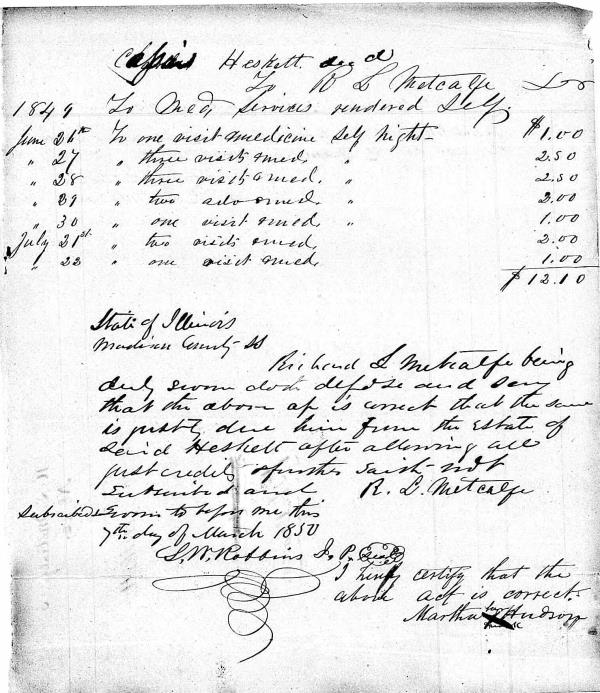 Heskett decd
To R L Metcalfe Dr
1849 To Med Services rendered Self.
June 26th To one visit & medicine Self Night - $1.00
" 27 " three visits & med. " 2.50
" 28 " three visits & med. " 2.50
" 29 " two adv & med. 2.00
" 30 " one visit & med " 1.00
July 21st " two visits & med, 2.00
" 22 " one visit & med, 1.00
$12.10
State of Illinois
Madison County SS
Richard L Metcalfe being
duly sworn doth depose and say
that the above ac is correct that the same
is justly due him from the Estate of
said Heskett after allowing all
just credits & further saith not
Subscribed and R. L. Metcalfe
Subscribed & sworn to before me this
7th day of March 1850
S. W. Robbins J. P. Seal
I hereby certify that the
above act is correct.
Martha her X mark Hudson